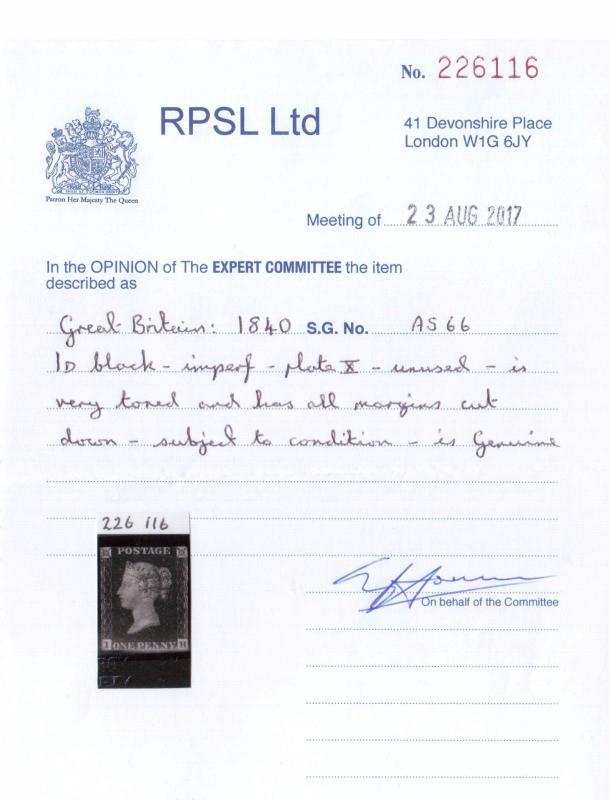 No. 226116
RPSL Ltd
41 Devonshire Place
London W1G 6JY
Patron Her Majesty The Queen
Meeting of 23 AUG 2017
In the OPINION of The EXPERT COMMITTEE the item
described as
Great Britain: 1840 S.G. No. AS66
1D black - imperf - plate X - unused - is
very toned and has all margins cut
down - subject to condition - is Genuine
226 116
POSTAGE
ONE PENNY H
On behalf of the Committee